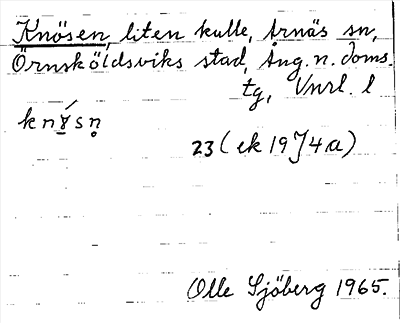 Knösen, liten kulle, Arnäs sn,
Örnsköldsviks stad, Ång. n. doms.
tg, Vnrl. l
knɤ́sn̥
23 (ek 19 J4a)
Olle Sjöberg 1965.